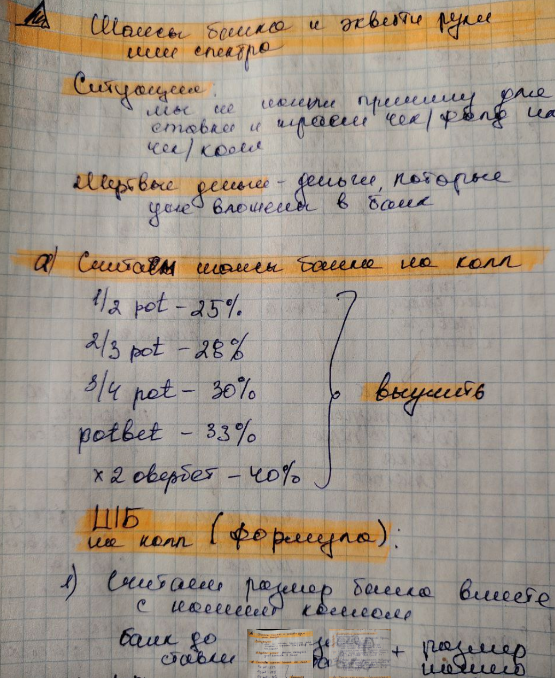 Шансы банка и эквити руки
или спектра
Ситуация:
мы не нашли причину для
ставки и играем чек/фолд или
чек/колл
Мертвые деньги - деньги, которые
уже вложены в банк
а) Считаем шансы банка на колл
1/2 pot - 25%
2/3 pot - 28%
3/4 pot - 30%
potbet - 33%
x2 овербет - 40%
выучить
ШБ
на колл (формула):
1) Считаем размер банка вместе
с нашим коллом
банк до
ставки
+ размер
нашего